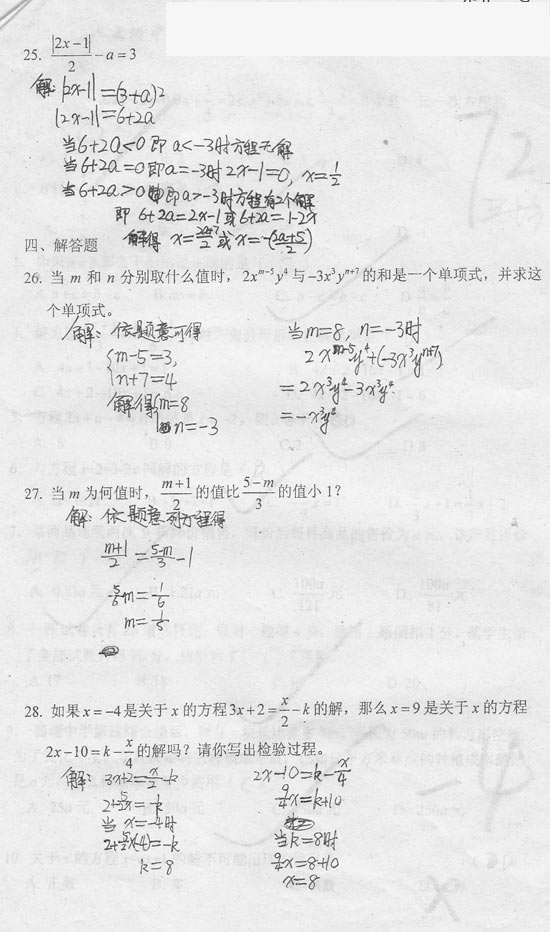 25. |2x-1|/2 - a = 3
解: |2x-1|=(3+a)2
|2x-1|=6+2a
当6+2a<0即a<-3时方程无解
当6+2a=0即a=-3时2x-1=0, x=1/2
当6+2a>0即a>-3时方程有2个解
即 6+2a=2x-1或6+2a=1-2x
解得 x=(2a+7)/2或x=-(2a+5)/2
四、解答题
26. 当 m 和 n 分别取什么值时，2x^(m-5)y^4 与 -3x^3y^(n+7) 的和是一个单项式，并求这
个单项式。
解: 依题意可得
{m-5=3,
n+7=4
解得{m=8
n=-3
当m=8, n=-3时
2x^(m-5)y^4+(-3x^3y^(n+7))
=2x^3y^4-3x^3y^4
=-x^3y^4
27. 当 m 为何值时，(m+1)/2 的值比 (5-m)/3 的值小 1？
解: 依题意列方程得
(m+1)/2=(5-m)/3-1
5/6m=1/6
m=1/5
28. 如果 x=-4 是关于 x 的方程 3x+2=x/2-k 的解，那么 x=9 是关于 x 的方程
2x-10=k-x/4 的解吗？请你写出检验过程。
解: 3x+2=x/2-k
2+5/2x=-k
当 x=-4时
2+5/2×(-4)=-k
k=8
2x-10=k-x/4
9/4x=k+10
当k=8时
9/4x=8+10
x=8
72
-4